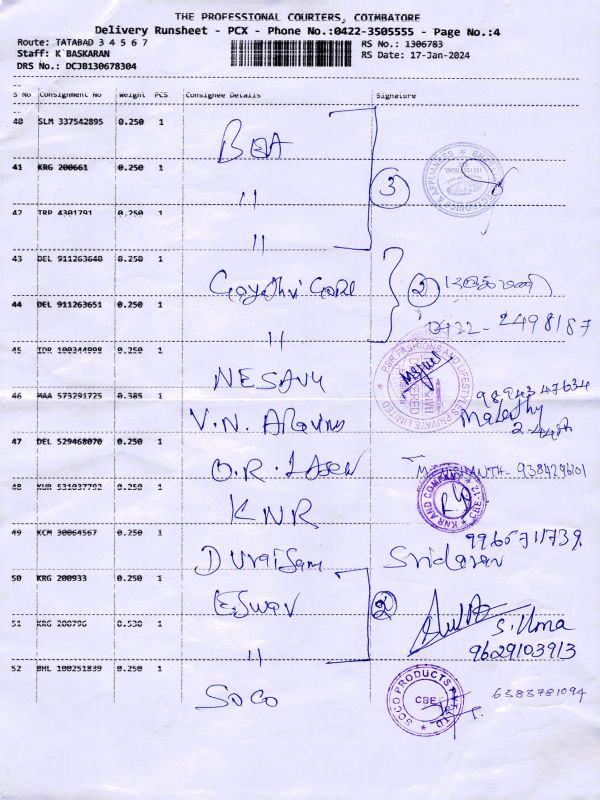 THE PROFESSIONAL COURIERS, COIMBATORE
Delivery Runsheet - PCX - Phone No.:0422-3505555 - Page No.:4
Route: TATABAD 3 4 5 6 7
RS No.: 1306783
Staff: K BASKARAN
RS Date: 17-Jan-2024
DRS No.: DCJB130678304
S No Consignment No Weight PCS Consignee Details Signature
40 SLM 337542895 0.250 1
41 KRG 200661 0.250 1
3
"
42 TRP 4301791 0.250 1
"
43 DEL 911263640 0.250 1
2
44 DEL 911263651 0.250 1
"
0422-2498187
45 100344998 0.250 1
NESAVU
46 MAA 573291725 0.385 1
9894347634
V.N.
47 DEL 529468070 0.250 1
O.R.
9384296101
48 KUR 531037792 0.250 1
KNR
KNR AND COMPANY
CBE-12
49 KCM 30064567 0.250 1
9965711739
Duraisam
Sridaran
50 KRG 200933 0.250 1
Eswar
2
51 KRG 200796 0.530 1
"
S. Uma
9629103913
52 BHL 100251839 0.250 1
SOCO
SOCO PRODUCTS
CBE
6383781094